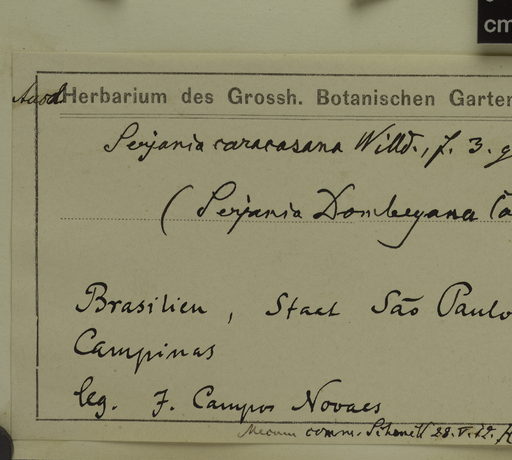 Aus d. Herbarium des Grossh. Botanischen Garten
Serjania caracasana Willd., f. 3. g
(Serjania Dombeyana Ca
Brasilien, Staat São Paulo
Campinas
leg. J. Campos Novaes
comm. 28. V. 12.
cm